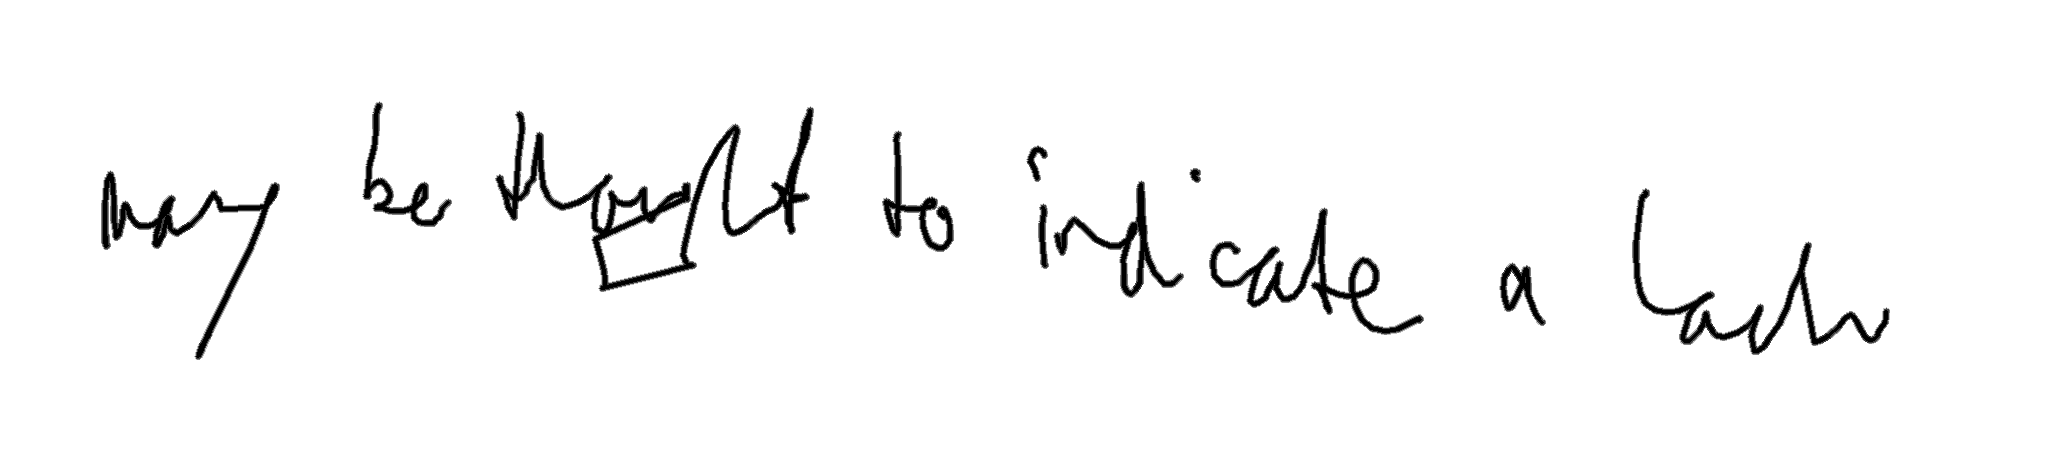 may be thought to indicate a lack